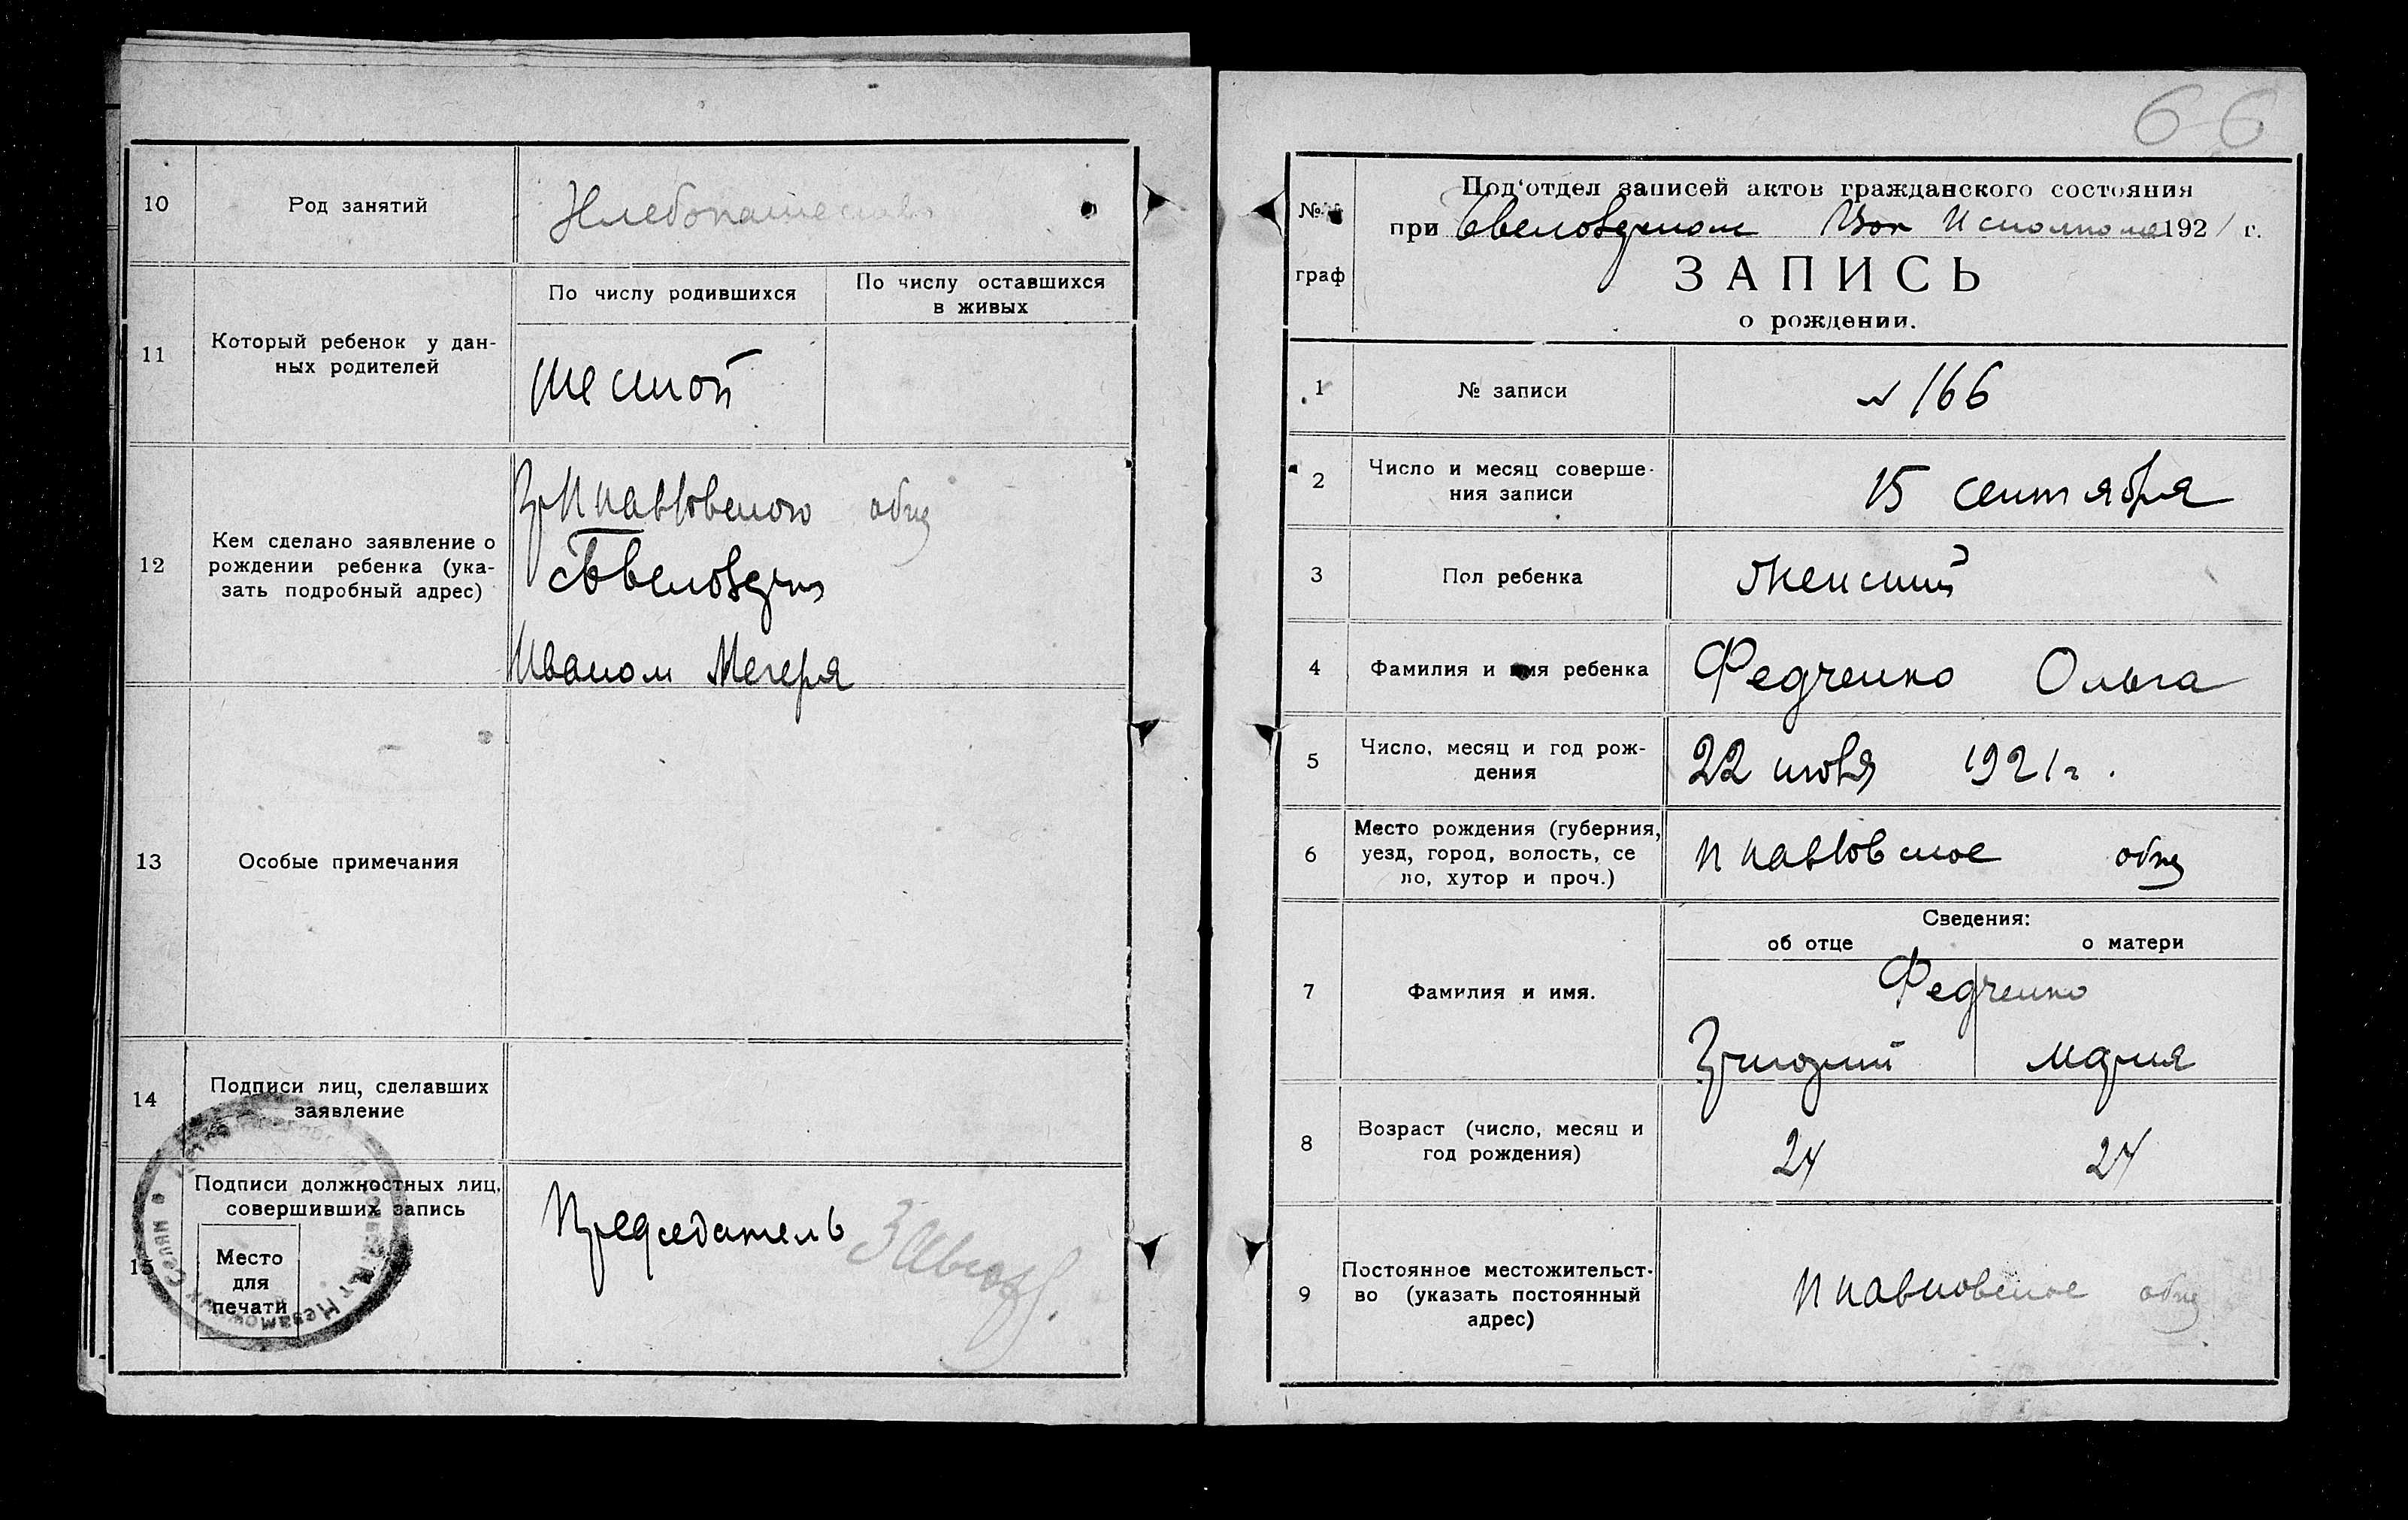 10
Род занятий
Хлебопашество
11
Который ребенок у дан-
ных родителей
По числу родившихся
По числу оставшихся
в живых
шестой
12
Кем сделано заявление о
рождении ребенка (ука-
зать подробный адрес)
общ
Иваном Мегеря
13
Особые примечания
14
Подписи лиц, сделавших
заявление
15
Подписи должностных лиц,
совершивших запись
Место
для
печати
Председатель
66
№№
граф
Под'отдел записей актов гражданского состояния
при Исполкоме 1921 г.
ЗАПИСЬ
о рождении.
1
№ записи
№ 166
2
Число и месяц соверше-
ния записи
15 сентября
3
Пол ребенка
Женский
4
Фамилия и имя ребенка
Федченко Ольга
5
Число, месяц и год рож-
дения
22 1921 г.
6
Место рождения (губерния,
уезд, город, волость, се
ло, хутор и проч.)
общ
Сведения:
об отце
о матери
7
Фамилия и имя.
Федченко
Григорий
Мария
8
Возраст (число, месяц и
год рождения)
24
24
9
Постоянное местожительст-
во (указать постоянный
адрес)
общ